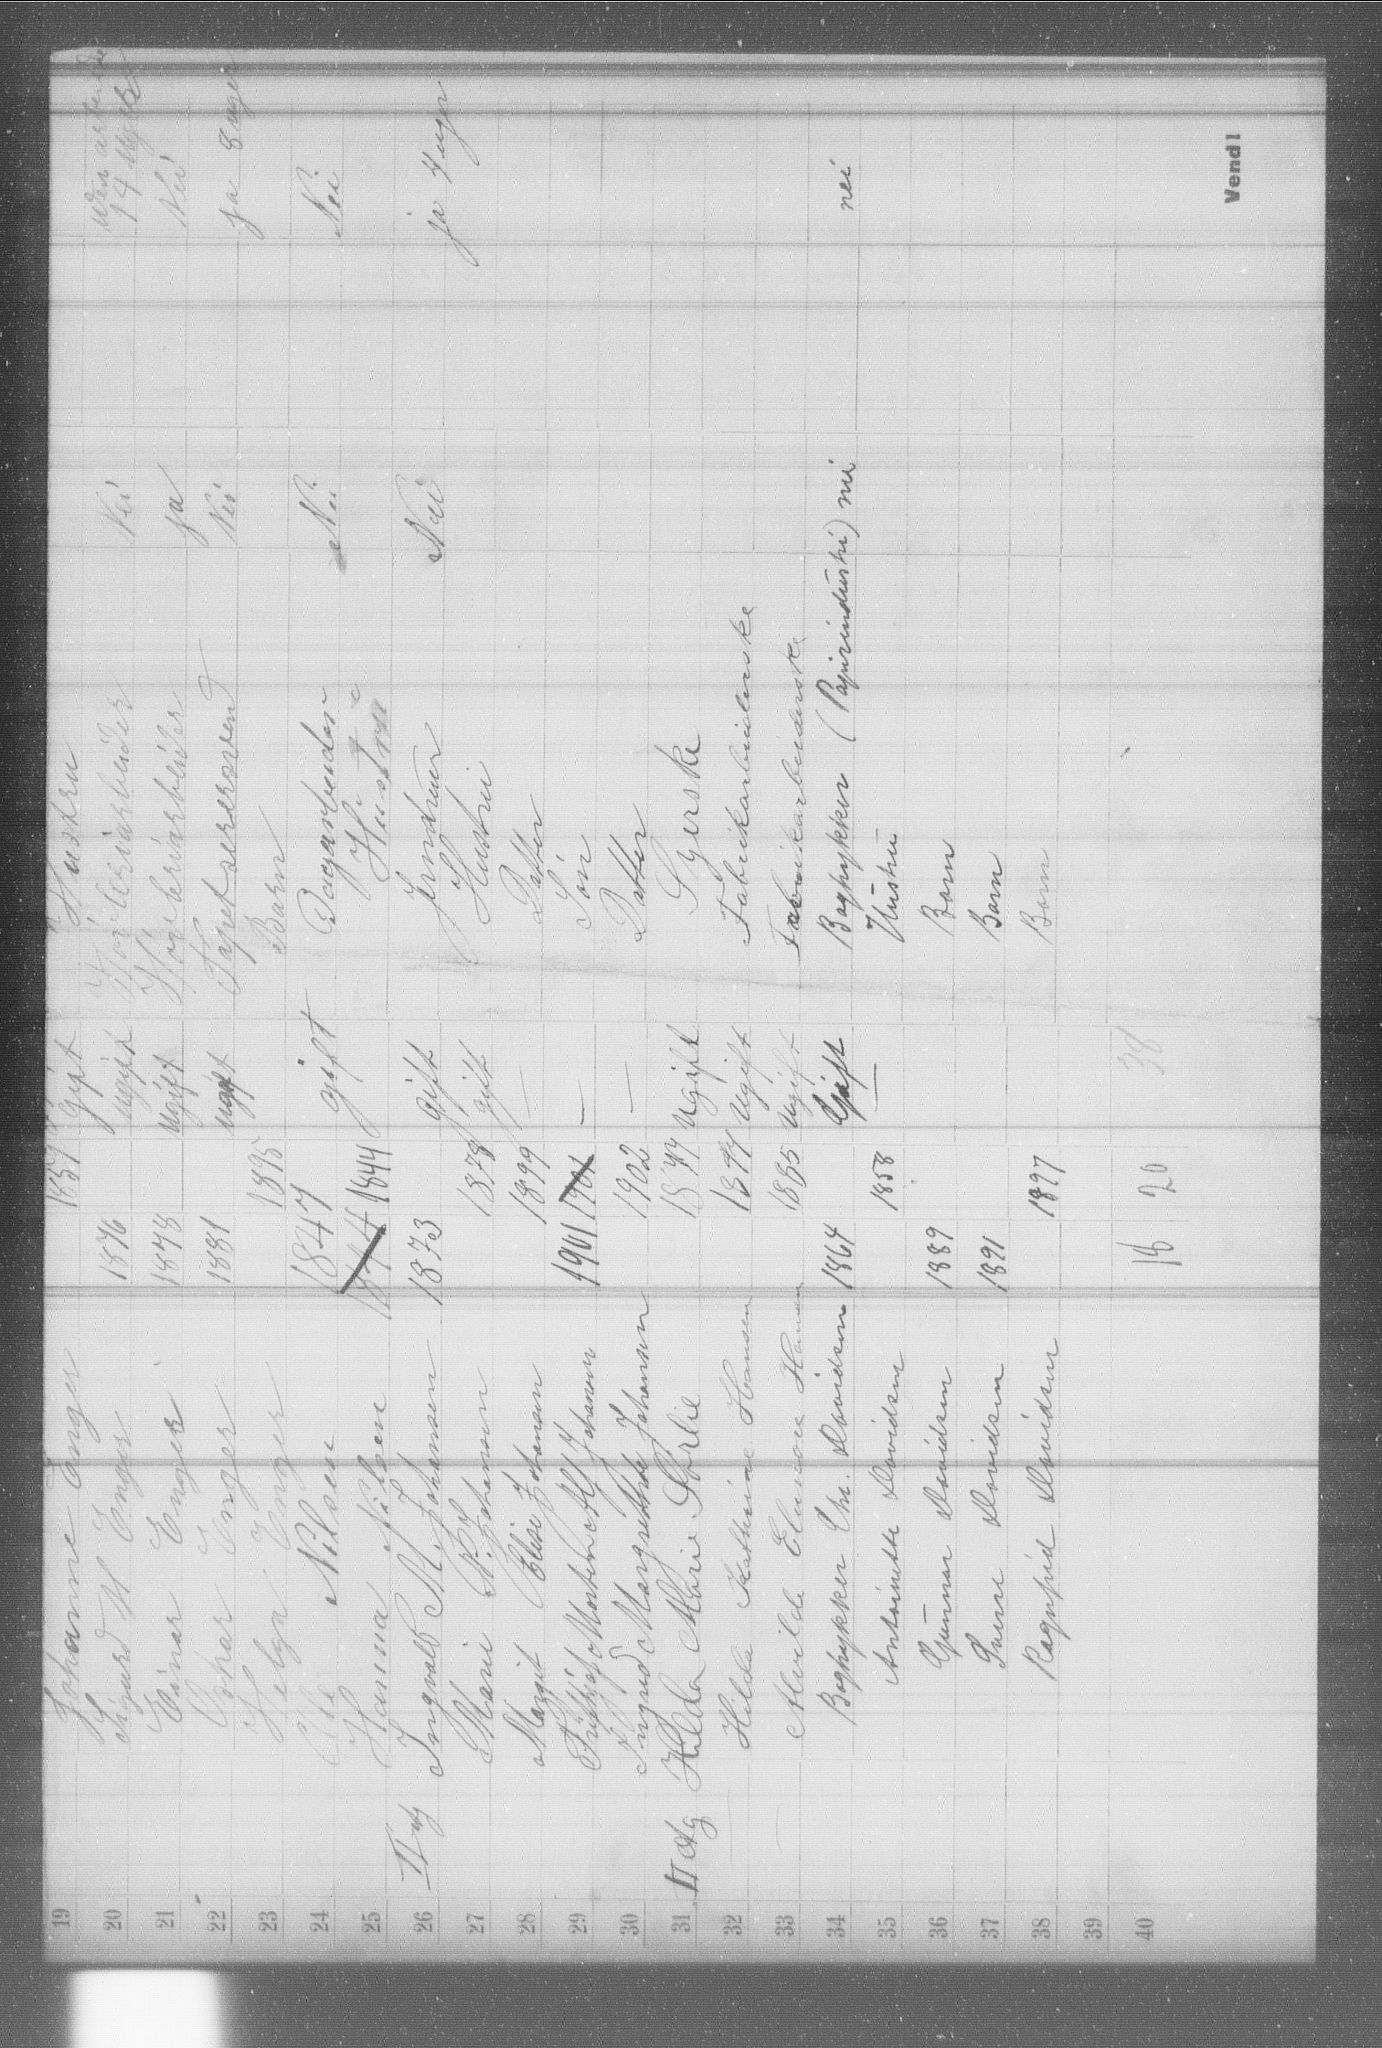 19 Johanne Enger 1857 gift Hustru
20 Sigurd M Enger 1876 ugift Nei uden arbeide 14
21 Einar Enger 1878 ugift ja Nei
22 Oskar Enger 1881 ugift Nei ja 8 uger
23 Helga Enger 1895 Barn
24 Ole Nilsen 1847 gift Nei Nei
25 Hanna Nilsen 1844 Hustru
26 II etg Ingvald M. Johansen 1873 gift Nei ja 4 uger
27 Marie Johansen 1878 gift Hustru
28 Margit Elise Johansen 1899 — Datter
29 Morten Alf Johansen 1901 — Søn
30 Ingrid Margrethe Johansen 1902 — Datter
31 II etg Hilda Marie Sørlie 1877 ugift Syerske
32 Hilda Kathrine Hansen ugift Fabrikarbeiderske
33 Alvilde Elenore Hansen 1885 ugift Fabrikarbeiderske
34 Boghykker Chr. Davidsen 1864 Gift Boghykker (Papirindustri) nei nei
35 Antoinette Davidsen 1858 — Hustru
36 Gunnar Davidsen 1889 Barn
37 Davidsen 1891 Barn
38 Ragnfrid Davidsen 1897 Barn
39
40 18 20 38
Vend!